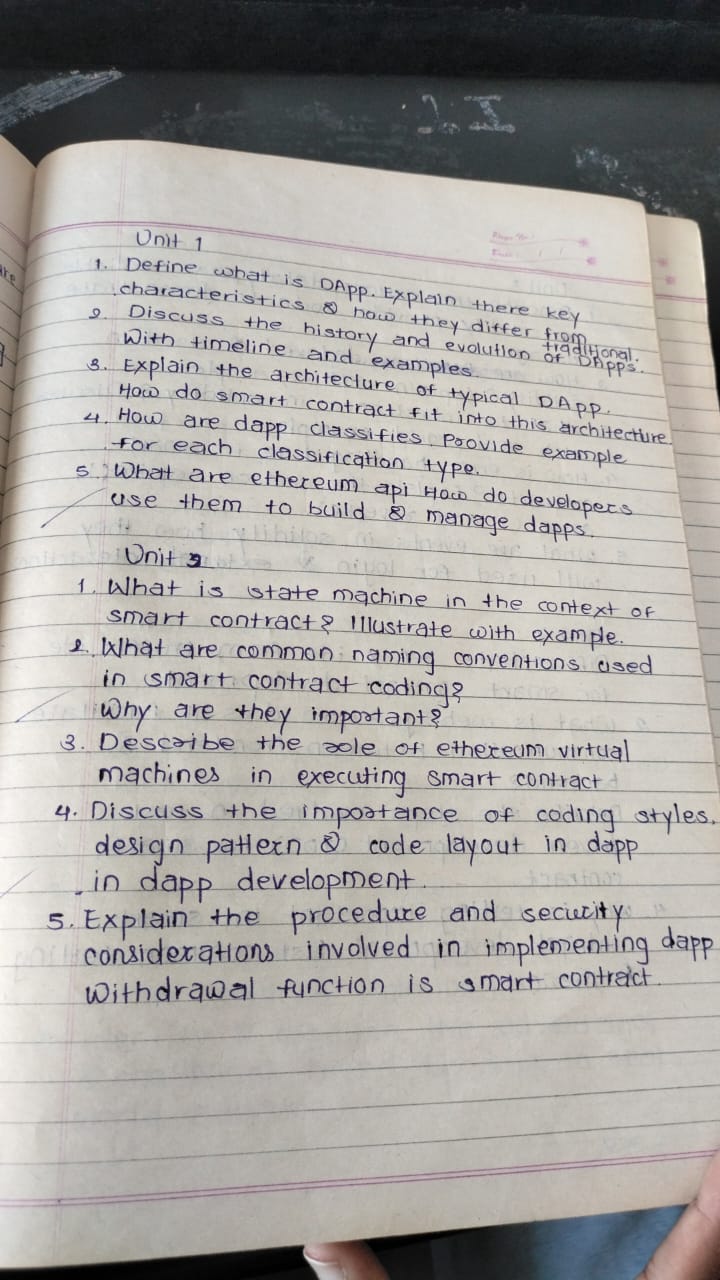 Unit 1
1. Define what is DApp. Explain there key
characteristics & how they differ from
traditional.
2. Discuss the history and evolution of DApps.
With timeline and examples.
3. Explain the architecture of typical DApp.
How do smart contract fit into this architecture
4. How are dapp classifies Provide example
for each classification type.
5. What are ethereum api How do developers
use them to build & manage dapps.
Unit 2
1. What is state machine in the context of
smart contract? Illustrate with example.
2. What are common naming conventions used
in smart contract coding?
Why are they important?
3. Describe the role of ethereum virtual
machines in executing smart contract
4. Discuss the importance of coding styles,
design pattern & code layout in dapp
in dapp development.
5. Explain the procedure and security
considerations involved in implementing dapp
withdrawal function is smart contract.